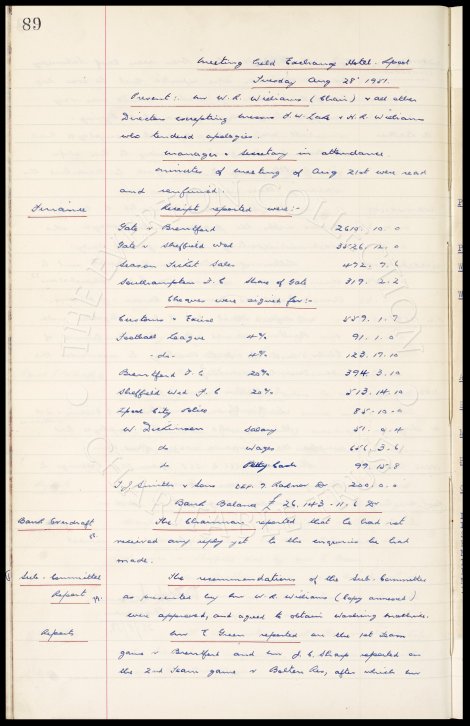 89
Meeting held Exchange Hotel. Lpool
Tuesday Aug 28' 1951.
Present:. Mr W. R. Williams (Chair) & all other
Directors excepting Messrs J. W. Lake & H. R. Williams
who tendered apologies.
Manager & Secretary in attendance.
Minutes of meeting of Aug 21st were read
and confirmed.
Finance Receipts reported were:-
Gate v Brentford 2610. 10. 0
Gate v Sheffield Wed 3526. 12. 0
Season Ticket Sales 472. 7. 6
Southampton F.C Share of Gate 319. 2. 2
Cheques were signed for:-
Customs & Excise 559. 1. 7
Football League 4% 91. 1. 0
-do- 4% 123. 17. 10
Brentford F.C 20% 394. 3. 10
Sheffield Wed F.C 20% 513. 14. 10
Lpool City Police 85. 10. 0
W. Dickinson Salary 51. 0. 4
do Wages 656. 3. 6
do Petty Cash 99. 15. 8
T. J. Smith & Sons 7 Radnor Dr 200. 0. 0
Bank Balance £ 26,143 - 11. 6 Dr
Bank Overdraft The Chairman reported that he had not
received any reply yet to the enquiries he had
made.
Sub. Committee The recommendations of the Sub. Committee
Report as presented by Mr W. R. Williams (Copy annexed)
were approved, and agreed to obtain washing machine.
Reports Mr T. Green reported on the 1st Team
game v Brentford and Mr J. C. Sharp reported on
the 2nd Team game v Bolton Res, after which Mr
THE EVERTON COLLECTION
CHARITABLE